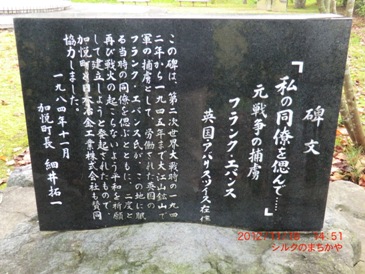 碑文
「私の同僚を偲んで……」
元戦争の捕虜
フランク・エバンス
英国アバリスツイス在住
この碑は、第二次世界大戦時の一九四
二年から一九四五年まで大江山鉱山で
軍の捕虜として、労働された英国の
フランク・エバンス氏が、この地に眠
る当時の同僚を偲ぶとともに、二度と
再び戦火の起こらないよう平和を祈願
して建立しようと発起されたもので、
加悦町と日本冶金工業株式会社も賛同
協力しました。
一九八四年十一月
加悦町長 細井拓一
シルクのまちかや